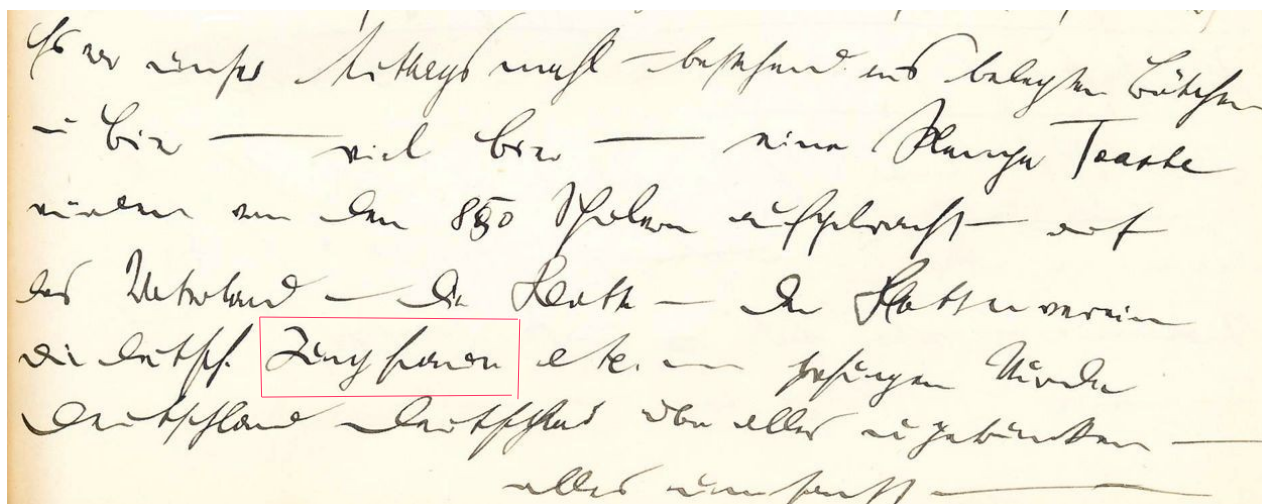 Es war unser Mittagsmahl – bestehend aus belegten Brötchen
u Bier — viel Bier — eine Menge Toaste
wurden von den 850 Schülern aufgebracht – auf
das Vaterland – die Flotte – den Flottenverein
die deutsch. Jungfrauen etc. gesungen wurde
Deutschland Deutschland über alles u getrunken —
alles umsonst —